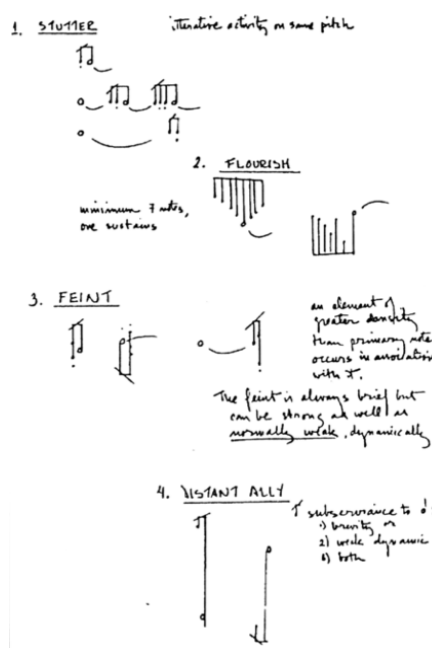 1. STUTTER iterative activity on same pitch
2. FLOURISH
minimum 7 notes,
one sustains
3. FEINT
an element of
greater density
than primary note
occurs in association
with it.
The feint is always brief but
can be strong as well as
normally weak, dynamically
4. DISTANT ALLY
subservience to
1) brevity or
2) weak dynamic
3) both